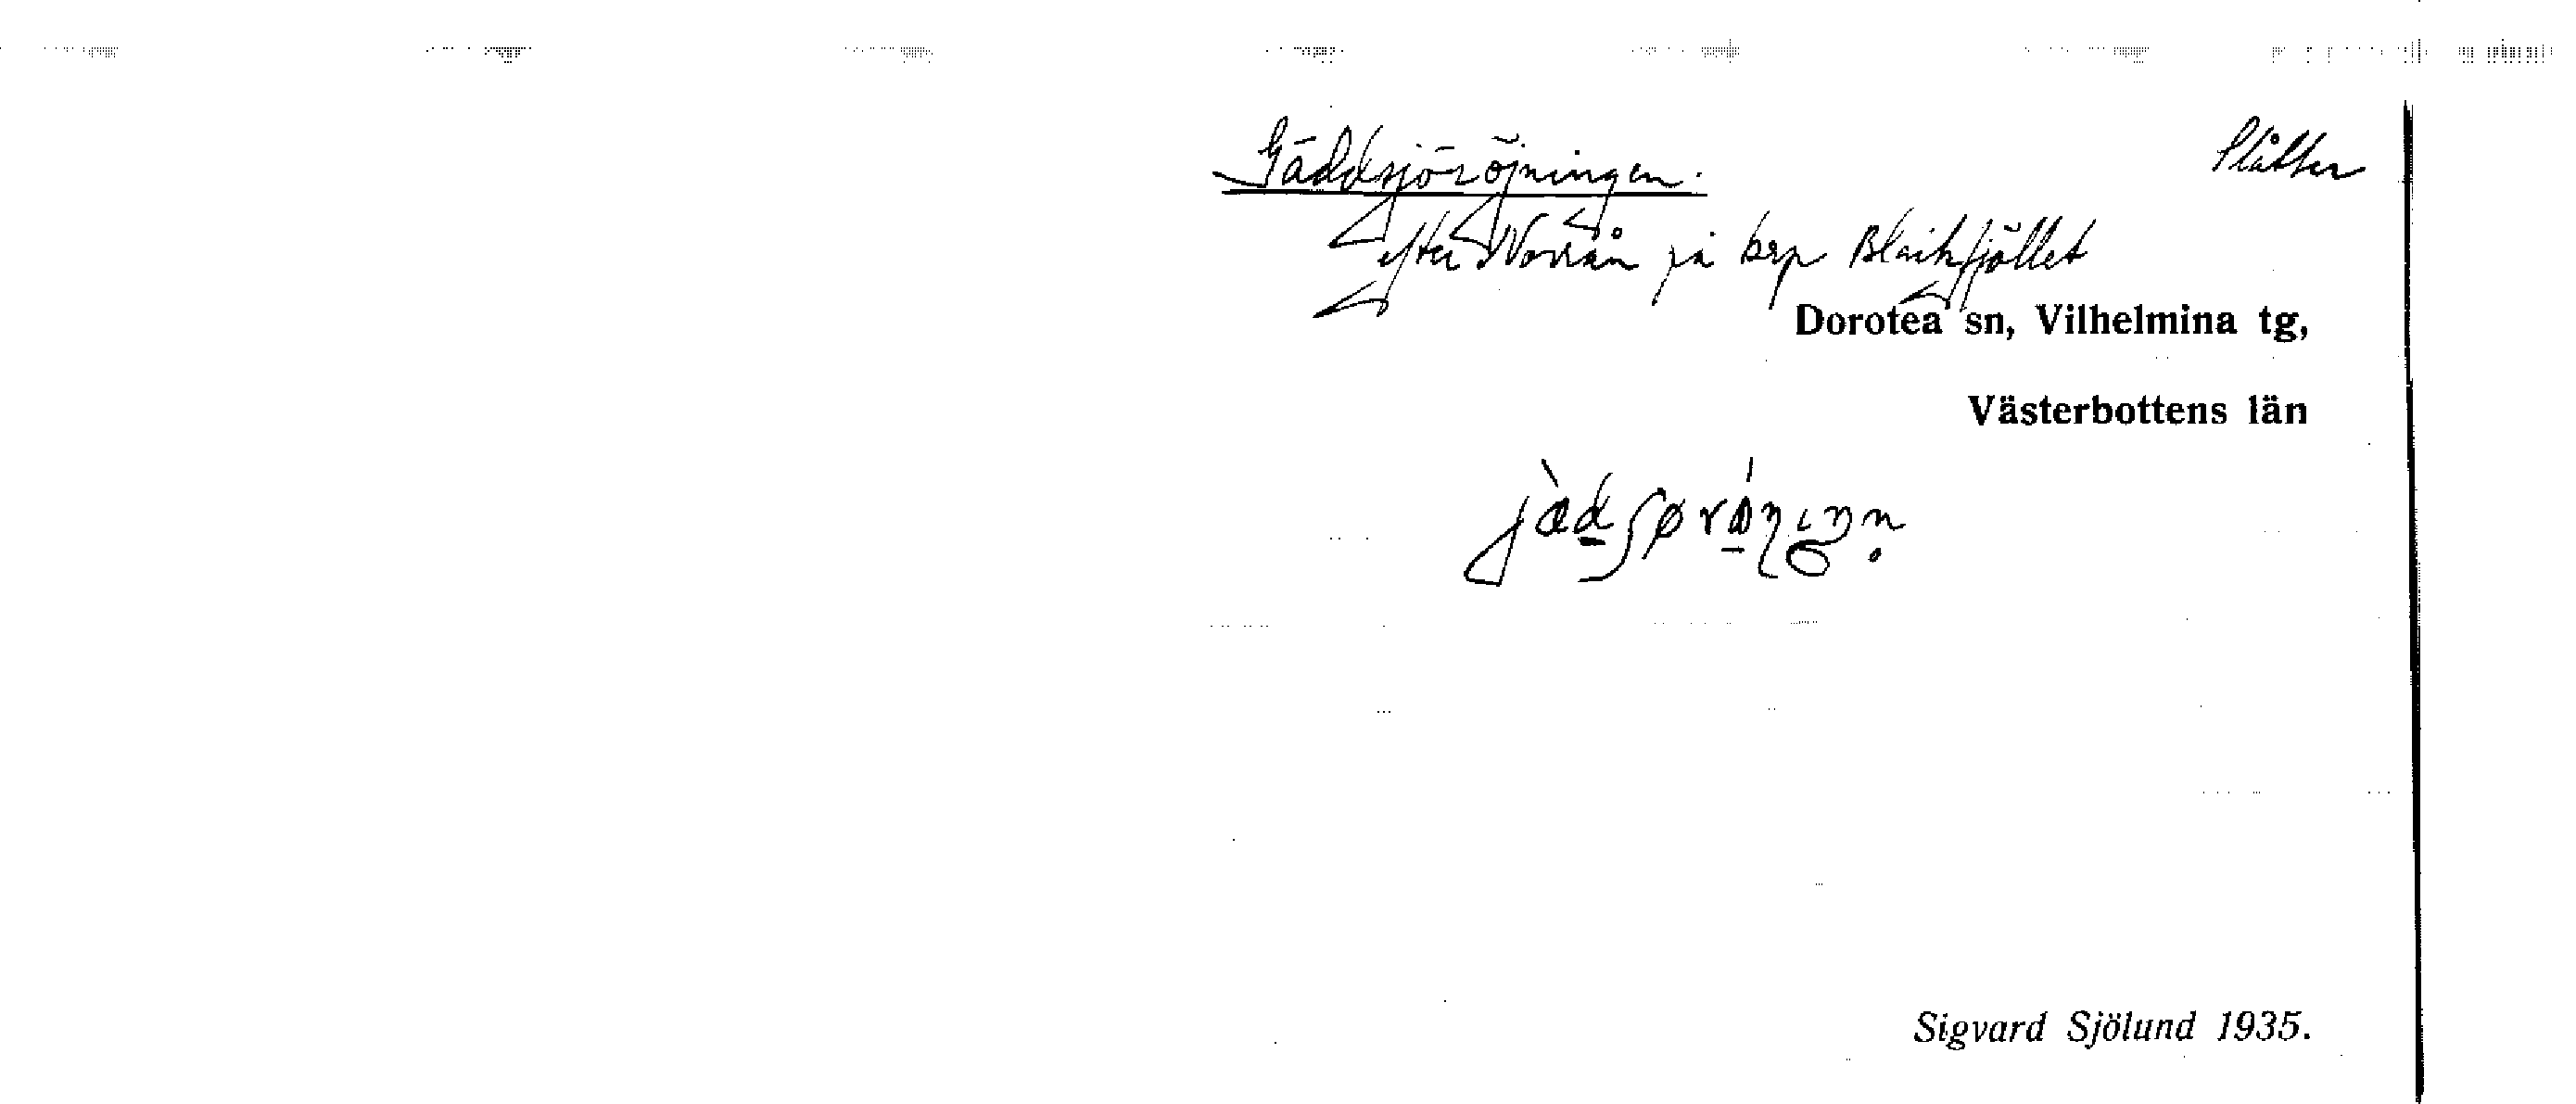 Gäddsjöröjningen. Slåtter
efter Norrån på krp Blaikfjället
Dorotea sn, Vilhelmina tg,
Västerbottens län
Sigvard Sjölund 1935.